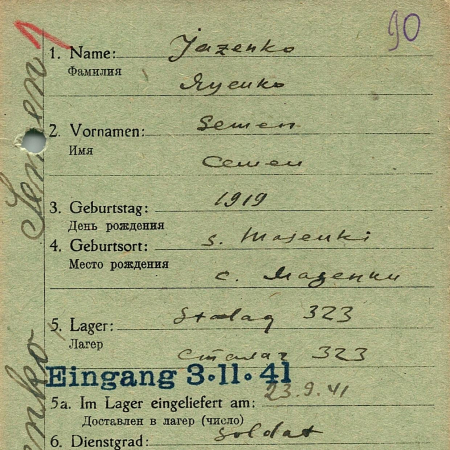 90
1
1. Name: Jazenko
Фамилия
Яценко
2. Vornamen: Semen
Имя
Семен
3. Geburtstag: 1919
День рождения
4. Geburtsort: s. Masenki
Место рождения с. Мазенки
5. Lager: Stalag 323
Лагер
Сталаг 323
Eingang 3.11.41
5a. Im Lager eingeliefert am: 23.9.41
Доставлен в лагер (число)
6. Dienstgrad: Soldat
enko Semen